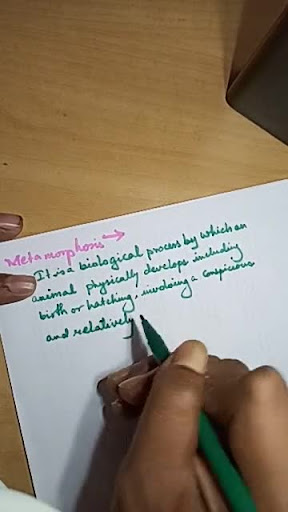 Metamorphosis →
It is a biological process by which an
animal physically develops including
birth or hatching, involving a conspicuous
and relatively